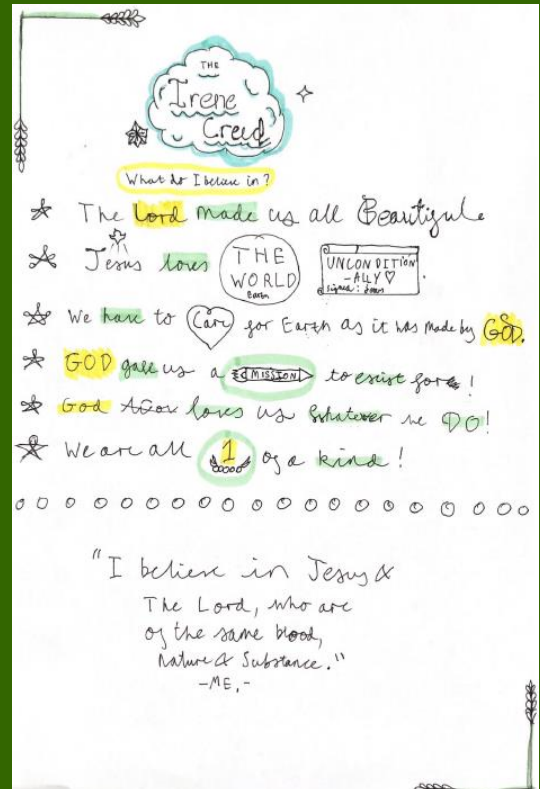 THE
Irene
Creed
What do I believe in?
The Lord made us all Beautiful.
Jesus loves THE WORLD Earth UNCONDITION-ALLY♡ signed: Jesus.
We have to Care for Earth as it was made by GOD.
GOD gave us a MISSION to exist for!
God loves us whatever we DO!
We are all 1 of a kind!
"I believe in Jesus &
The Lord, who are
of the same blood,
Nature & Substance."
-ME,-